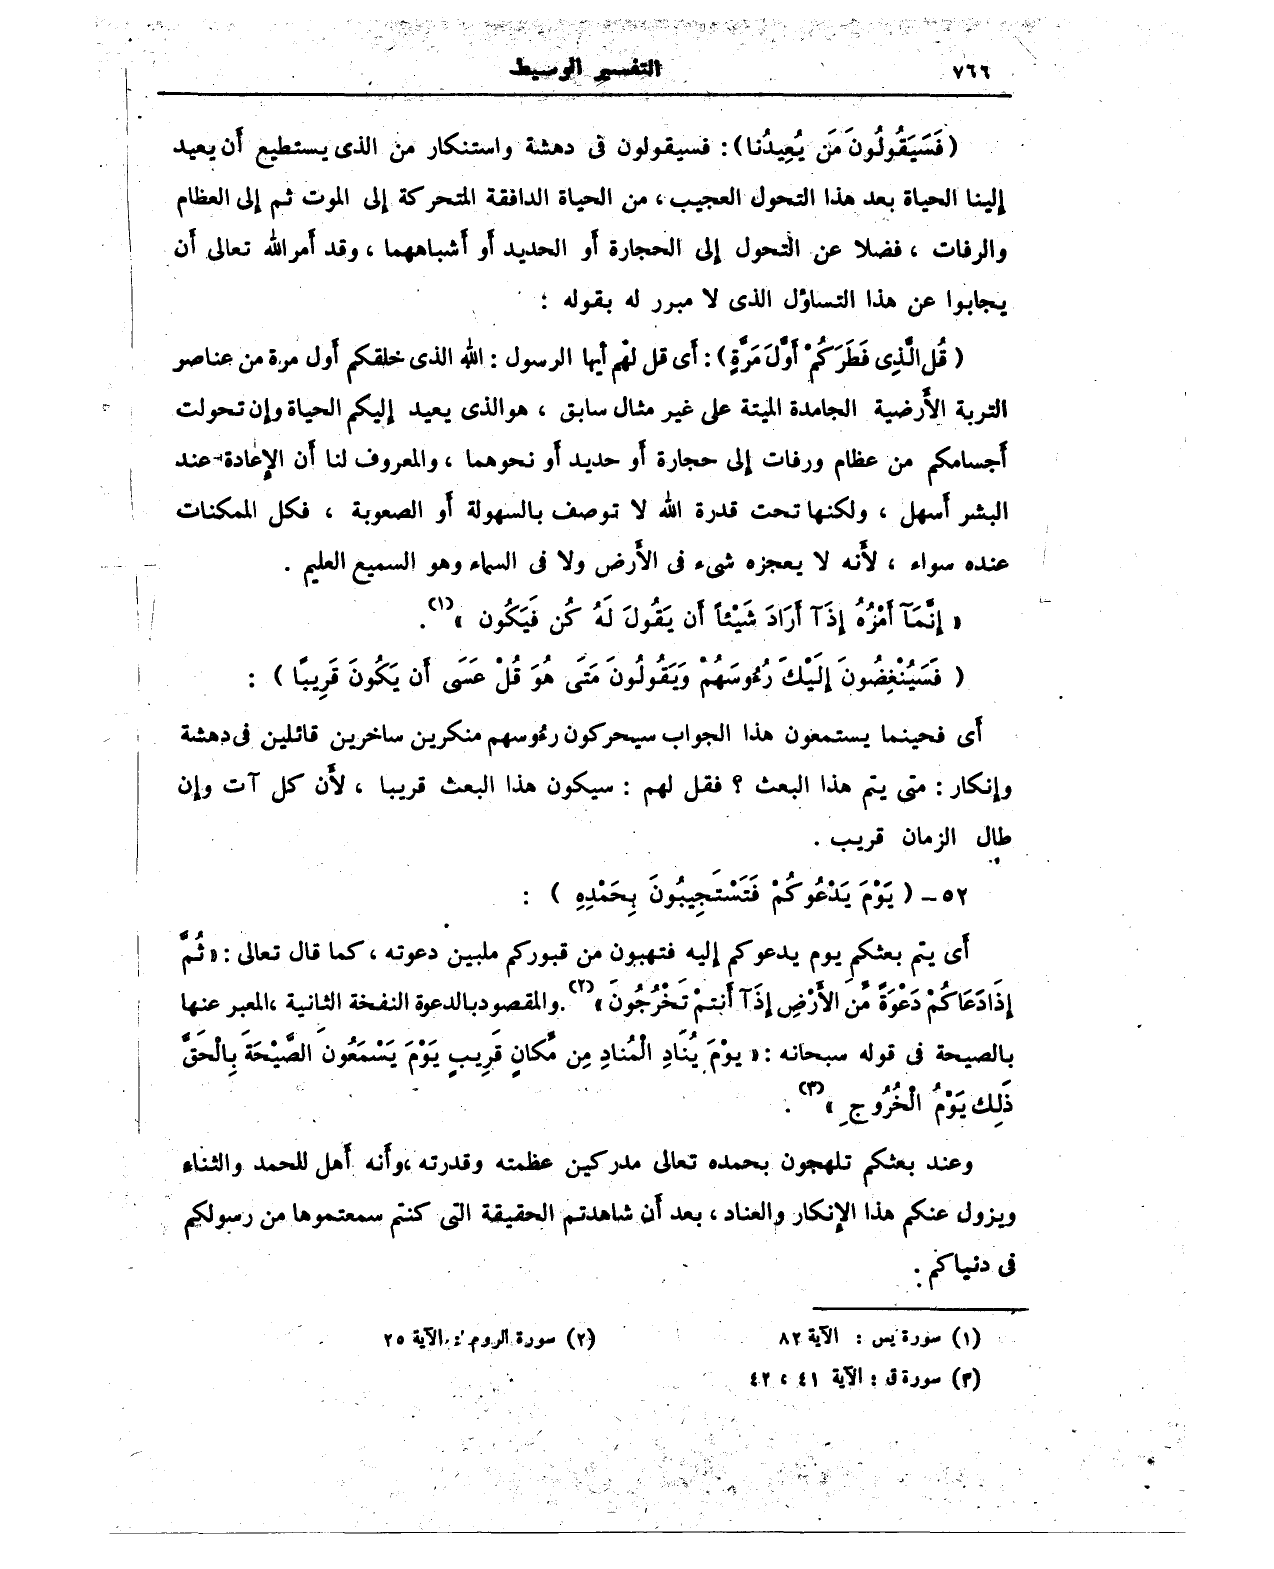 ٧٦٦ التفسير الوسيط
( فَسَيَقُولُونَ مَن يُعِيدُنا ) : فسيقولون فى دهشة واستنكار من الذى يستطيع أن يعيد
إلينا الحياة بعد هذا التحول العجيب ، من الحياة الدافقة المتحركة إلى الموت ثم إلى العظام
والرفات ، فضلا عن التحول إلى الحجارة أو الحديد أو أشباههما ، وقد أمر الله تعالى أن
يجابوا عن هذا التساؤل الذى لا مبرر له بقوله :
( قُل الَّذِى فَطَرَكُمْ أَوَّلَ مَرَّةٍ ) : أى قل لهم أيها الرسول : الله الذى خلقكم أول مرة من عناصر
التربة الأرضية الجامدة الميتة على غير مثال سابق ، هو الذى يعيد إليكم الحياة وإن تحولت
أجسامكم من عظام ورفات إلى حجارة أو حديد أو نحوهما ، والمعروف لنا أن الإعادة عند
البشر أسهل ، ولكنها تحت قدرة الله لا توصف بالسهولة أو الصعوبة ، فكل الممكنات
عنده سواء ، لأنه لا يعجزه شىء فى الأرض ولا فى السماء وهو السميع العليم .
« إِنَّمَآ أَمْرُهُ إِذَآ أَرَادَ شَيْئاً أَن يَقُولَ لَهُ كُن فَيَكُون »(١) .
( فَسَيُنْغِضُونَ إِلَيْكَ رُءُوسَهُمْ وَيَقُولُونَ مَتَى هُوَ قُلْ عَسَى أَن يَكُونَ قَرِيبًا ) :
أى فحينما يستمعون هذا الجواب سيحركون رءوسهم منكرين ساخرين قائلين فى دهشة
وإنكار : متى يتم هذا البعث ؟ فقل لهم : سيكون هذا البعث قريبا ، لأن كل آت وإن
طال الزمان قريب .
٥٢ - ( يَوْمَ يَدْعُوكُمْ فَتَسْتَجِيبُونَ بِحَمْدِهِ ) :
أى يتم بعثكم يوم يدعوكم إليه فتهبون من قبوركم ملبين دعوته ، كما قال تعالى : « ثُمَّ
إِذَا دَعَاكُمْ دَعْوَةً مِّنَ الأَرْضِ إِذَآ أَنتمْ تَخْرُجُونَ »(٢) . والمقصود بالدعوة النفخة الثانية ، المعبر عنها
بالصيحة فى قوله سبحانه : « يوْمَ يُنَادِ الْمُنَادِ مِن مَّكانٍ قَرِيبٍ يَوْمَ يَسْمَعُونَ الصَّيْحَةَ بِالْحَقِّ
ذَلِك يَوْمُ الْخُرُوجِ »(٣) .
وعند بعثكم تلهجون بحمده تعالى مدركين عظمته وقدرته ، وأنه أهل للحمد والثناء
ويزول عنكم هذا الإنكار والعناد ، بعد أن شاهدتم الحقيقة التى كنتم سمعتموها من رسولكم
فى دنياكم .
(١) سورة يس : الآية ٨٢ (٢) سورة الروم : الآية ٢٥
(٣) سورة ق : الآية ٤١ ، ٤٢